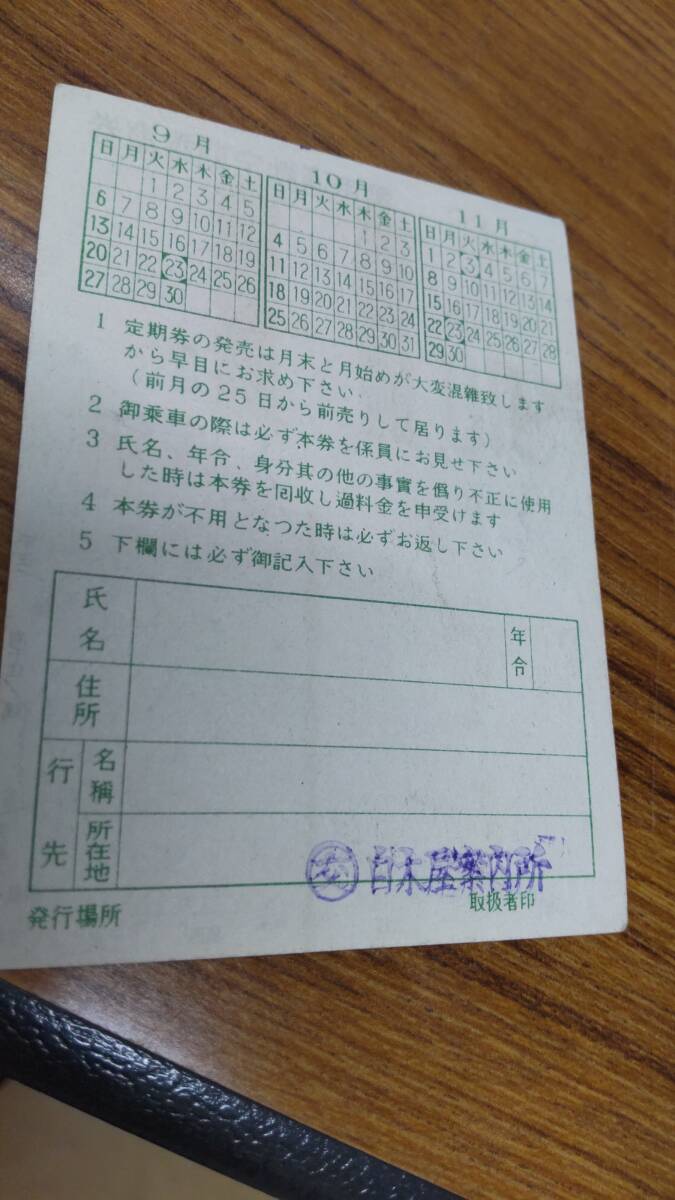 9月
日月火水木金土
1 2 3 4 5
6 7 8 9 10 11 12
13 14 15 16 17 18 19
20 21 22 23 24 25 26
27 28 29 30
10月
日月火水木金土
1 2 3
4 5 6 7 8 9 10
11 12 13 14 15 16 17
18 19 20 21 22 23 24
25 26 27 28 29 30 31
11月
日月火水木金土
1 2 3 4 5 6 7
8 9 10 11 12 13 14
15 16 17 18 19 20 21
22 23 24 25 26 27 28
29 30
1 定期券の発売は月末と月始めが大変混雑致します
から早目にお求め下さい、
(前月の25日から前売りして居ります)
2 御乗車の際は必ず本券を係員にお見せ下さい
3 氏名、年令、身分其の他の事實を僞り不正に使用
した時は本券を回収し過料金を申受けます
4 本券が不用となつた時は必ずお返し下さい
5 下欄には必ず御記入下さい
氏名
年令
住所
行先
名稱
所在地
白木屋案内所
発行場所
取扱者印